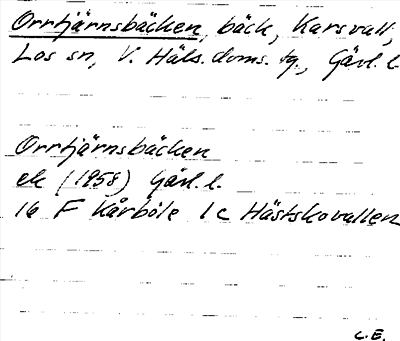 Orrtjärnsbäcken, bäck, Karsvall,
Los sn, V. Häls. doms. tg., Gävl. l.
Orrtjärnsbäcken
ek (1958) Gävl. l.
16 F Kårböle 1c Hästskovallen
C.E.